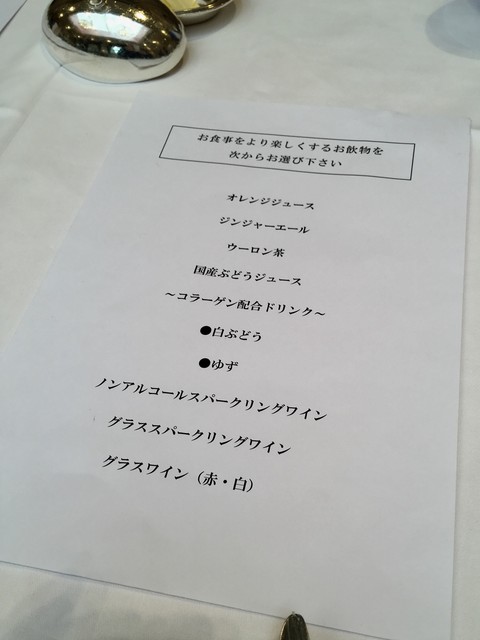 お食事をより楽しくするお飲物を
次からお選び下さい
オレンジジュース
ジンジャーエール
ウーロン茶
国産ぶどうジュース
～コラーゲン配合ドリンク～
●白ぶどう
●ゆず
ノンアルコールスパークリングワイン
グラススパークリングワイン
グラスワイン（赤・白）